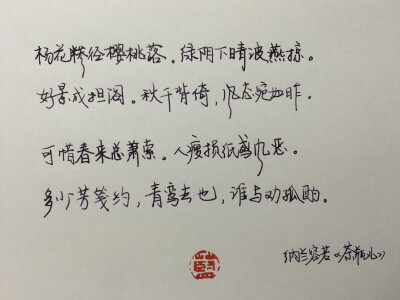 杨花糁径樱桃落。绿阴下晴波燕掠。
好景成担阁。秋千背倚，风态宛如昨。
可惜春来总萧索。人瘦损纸鸢风恶。
多少芳笺约，青鸾去也，谁与劝孤酌。
纳兰容若《茶瓶儿》